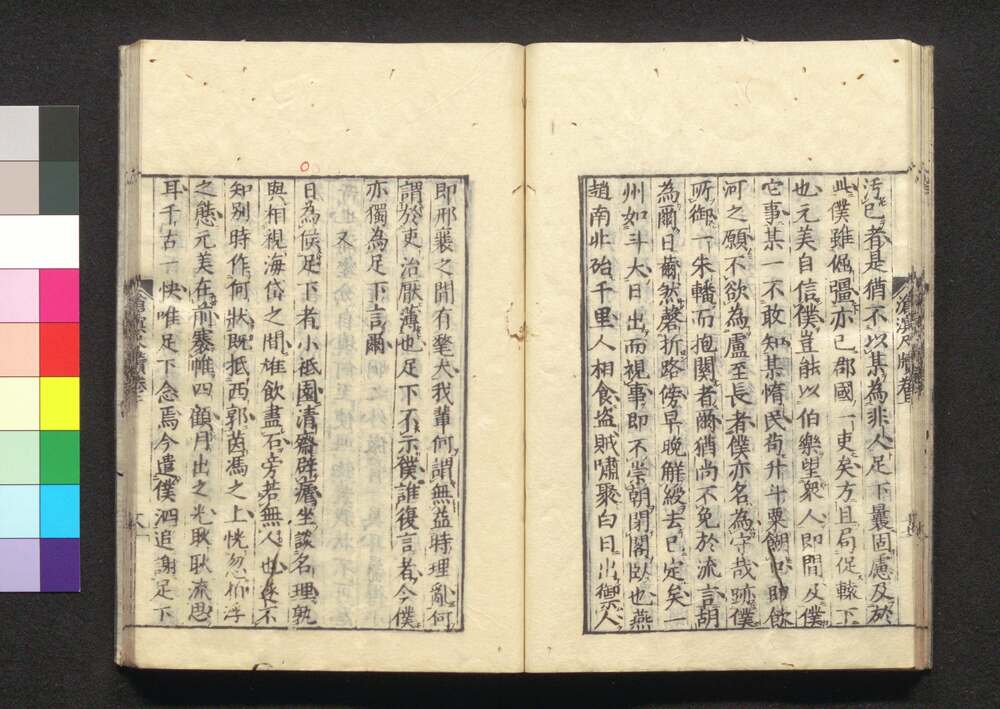 汚已者是猶不以某為非人足下曩固慮及於
此僕雖倔彊亦已郡國一吏矣方且局促轅下
也元美自信僕豈能以伯樂望衆人即間及僕
它事某一不敢知某惰民苟升斗粟餬口即飲
河之願不欲為盧至長者僕亦名為守哉跡僕
所御一朱轓而抱関者爾猶尚不免於流言胡
為爾日爾然磬折路傍早晚觧綬去已定矣一
州如斗大日出而視事即不崇朝閉閣臥也燕
趙南北殆千里人相食盗賊嘯聚白日出禦人
即邢襄之間有
犬我軰何謂無益時理亂何
謂於吏治厭薄也足下不示僕誰復言者今僕
亦獨為足下言爾
日為候足下者小祗園清齋辟
坐談名理孰
與相視海岱之間雄飲盡石旁若無人也遂不
知別時作何狀既抵西郭茵馮之上恍忽
浮
之態元美在前褰帷四顧月出之光耿耿流思
耳千古一快唯足下念焉今遣僕泗追謝足下